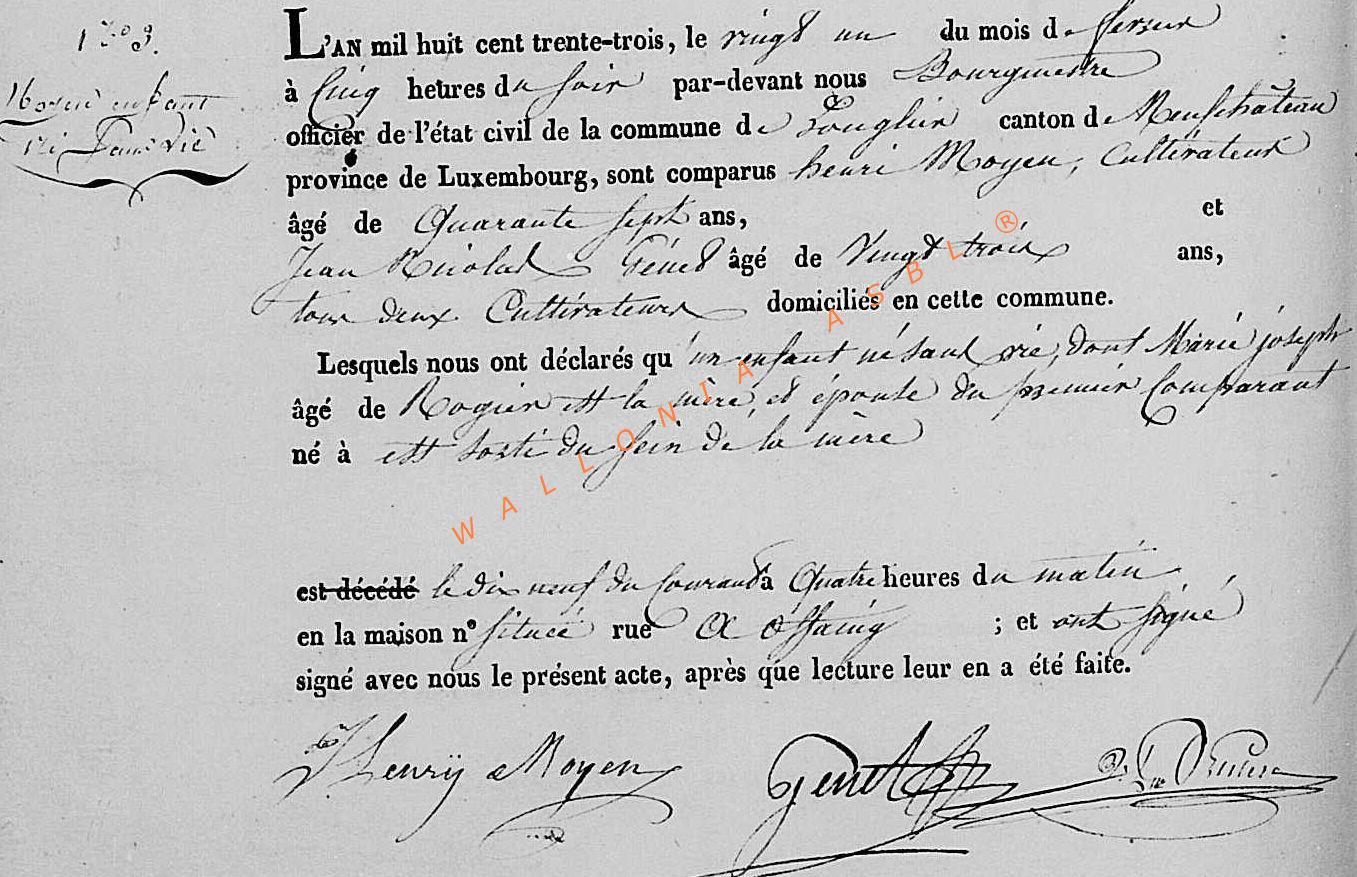 Moyen enfant
né sans vie
L'AN mil huit cent trente-trois, le vingt un du mois de
à cinq heures du soir par-devant nous Bourgmestre
officier de l'état civil de la commune de Longlier canton de Neufchâteau
province de Luxembourg, sont comparus henri Moyen, Cultivateur
âgé de Quarante sept ans, et
Jean Nicolas Génet âgé de Vingt trois ans,
tous deux Cultivateurs domiciliés en cette commune.
Lesquels nous ont déclarés qu'un enfant né sans vie, dont Marie joseph
âgé de Rogier est la mère, et épouse du premier Comparant
né à est sorti du sein de la mère
est décédé le dix neuf du Courant à Quatre heures du matin
en la maison n° située rue A offaing ; et ont signé
signé avec nous le présent acte, après que lecture leur en a été faite.
Henry Moyen Genet
WALLONIA ASBL ®